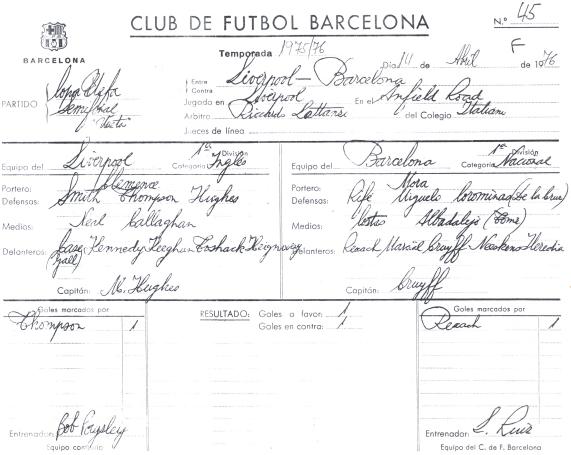 CLUB DE FUTBOL BARCELONA
N.° 45
BARCELONA
Temporada 1975/76
F
Día 14 de Abril de 1976
PARTIDO
Copa Uefa
Semifinal
"Vuelta"
Entre Contra Liverpool - Barcelona
Jugado en Liverpool En el Anfield Road
Arbitro Riccardo Lattanzi del Colegio Italiano
Jueces de línea
Equipo del Liverpool Categoría 1ª División Inglés
Portero: Clemence
Defensas: Smith Thompson Hughes
Medios: Neal Callaghan
Delanteros: Case Kennedy Keeghan Toshack Heignway
(Hall)
Capitán: M. Hughes
Equipo del Barcelona Categoría 1ª División Nacional
Portero: Mora
Defensas: Rife Migueli Corominas (De la Cruz)
Medios: Costas Albadalejo (Tomé)
Delanteros: Rexach Marcial Cruyff Neeskens Heredia
Capitán: Cruyff
Goles marcados por
Thompson 1
RESULTADO: Goles a favor: 1
Goles en contra: 1
Goles marcados por
Rexach 1
Entrenador: Bob Paysley
Equipo contrario
Entrenador: L. Ruiz
Equipo del C. de F. Barcelona